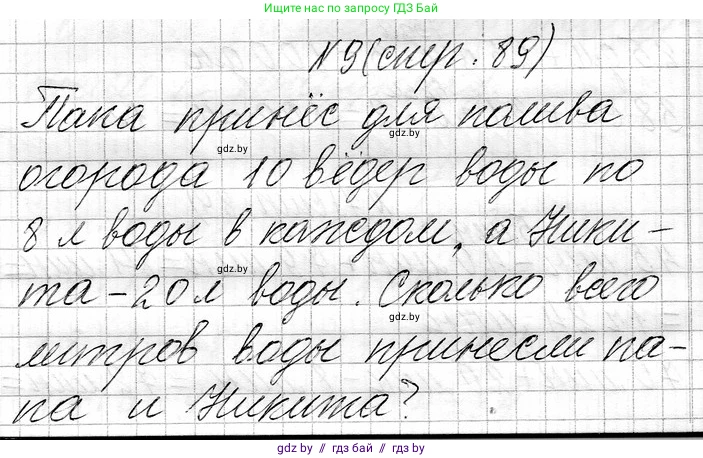 Ищите нас по запросу ГДЗ Бай
N 9 (стр. 89)
Папа принёс для полива
gdz.by
gdz.by
огорода 10 вёдер воды по
8 л воды в каждом, а Ники-
gdz.by
та - 20 л воды. Сколько всего
gdz.by
литров воды принесли па-
па и Никита?
gdz by // гдз бай // гдз by